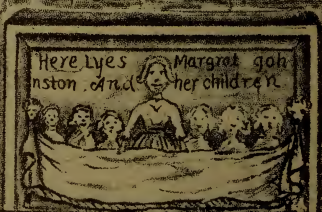 Here Lyes Margrat goh
nston . And her children